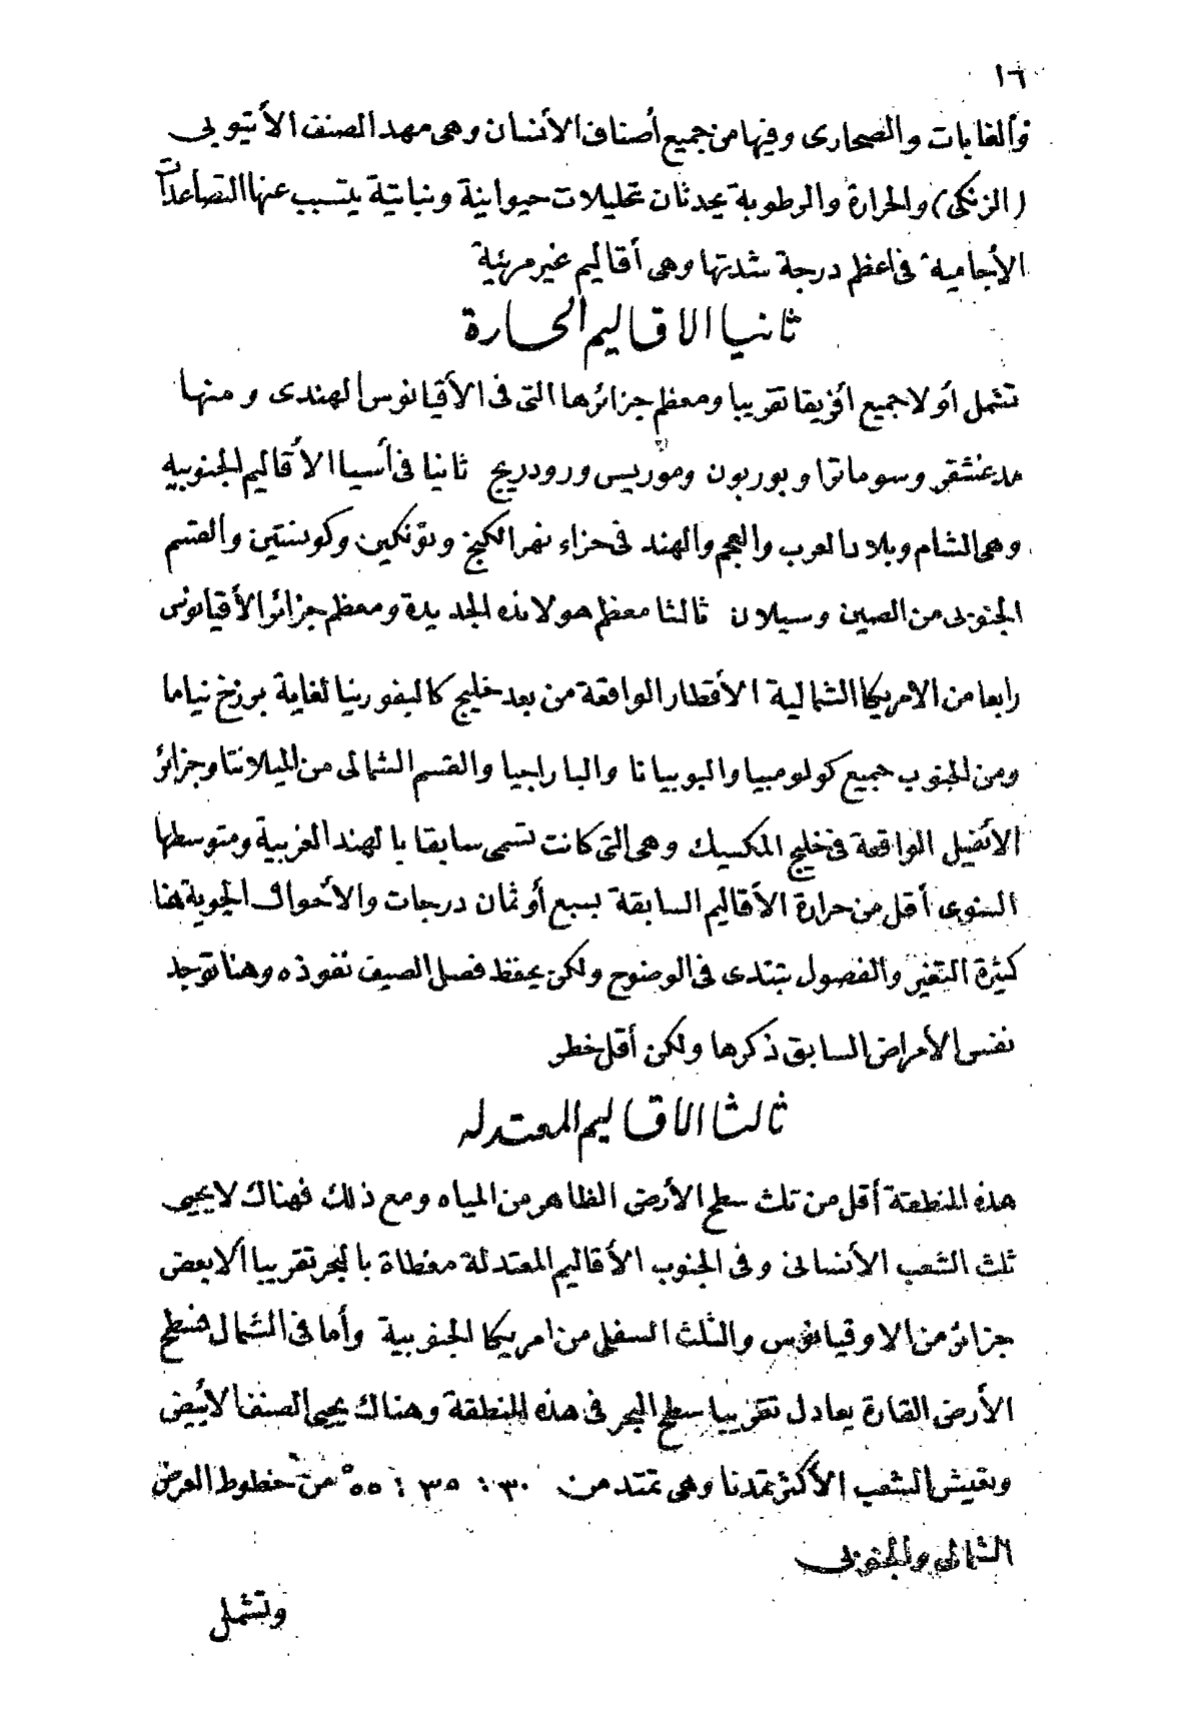 ١٦
والغابات والصحارى وفيها من جميع أصناف الأنسان وهى مهد الصنف الأتيوبى
(الزنكى) والحرارة والرطوبة يحدثان تحليلات حيوانية ونباتية يتسبب عنها التصاعدات
الأجامية فى اعظم درجة شدتها وهى أقاليم غير مرئية
ثانيا الاقاليم الحارة
تشمل أولا جميع أفريقا تقريبا ومعظم جزائرها التى فى الأقيانوس الهندى ومنها
مدغشقر وسوماترا وبوربون وموريس ورودريج ثانيا فى أسيا الأقاليم الجنوبيه
وهى الشام وبلاد العرب والعجم والهند فى حزاء نهر الكنج وتونكين وكوسنتين والقسم
الجنوبى من الصين وسيلان ثالثا معظم هولانده الجديدة ومعظم جزائر الأقيانوس
رابعا من الامريكا الشمالية الأقطار الواقعة من بعد خليج كاليفورينا لغاية برزخ نياما
ومن الجنوب جميع كولومبيا والبوبيانا والباراجيا والقسم الشمالى من الميلانتا وجزائر
الأنتيل الواقعة فى خليج المكسيك وهى التى كانت تسمى سابقا بالهند الغربية ومتوسطها
السنوى أقل من حرارة الأقاليم السابقة بسبع أو ثمان درجات والأحوال الجوية هنا
كثيرة التغير والفصول تبتدى فى الوضوح ولكن يحفظ فصل الصيف نفوذه وهنا توجد
نفس الأمراض السابق ذكرها ولكن أقل خطر
ثالثا الاقاليم المعتدله
هذه المنطقة أقل من تلث سطح الأرض الظاهر من المياه ومع ذلك فهناك لا يحيى
ثلث الشعب الأنسانى وفى الجنوب الأقاليم المعتدلة مغطاة بالبحر تقريبا ألا بعض
جزائر من الاوقيانوس والثلث السفلى من امريكا الجنوبية وأما فى الشمال فسطح
الأرض القارة يعادل تقريبا سطح البحر فى هذه المنطقة وهناك يحيى الصنف الأبيض
وتعيش الشعب الأكثر تمدنا وهى تمتد من ٣٠ : ٣٥ : ٥٥° من خطوط العرض
الشمالى والجنوبى
وتشمل